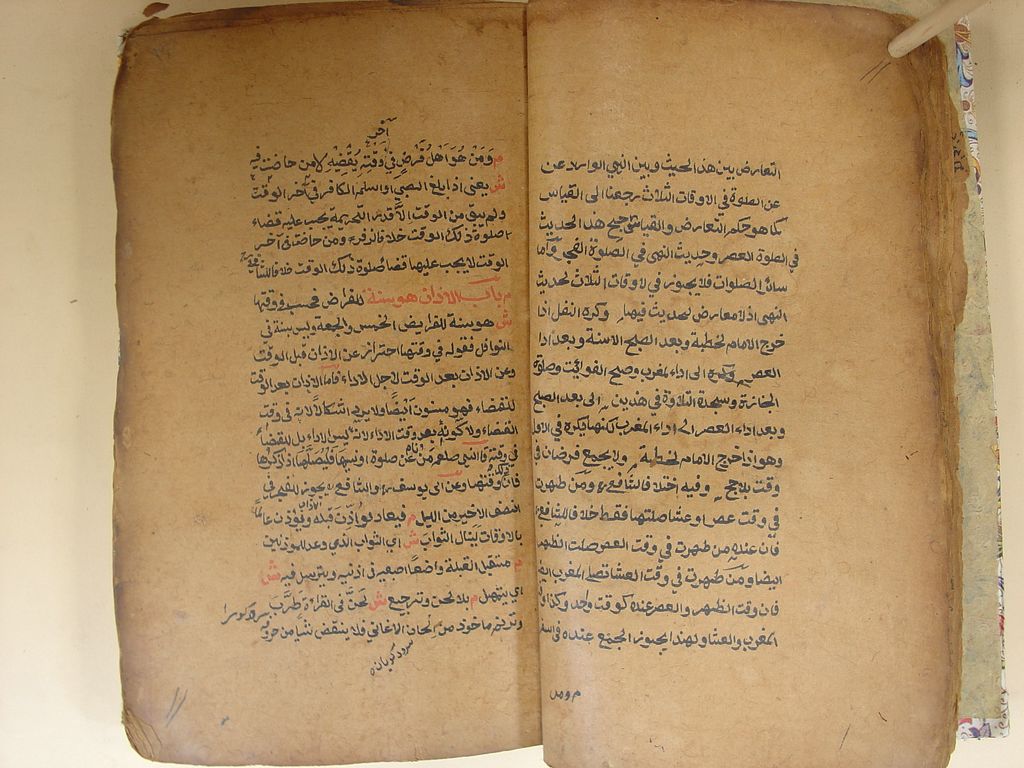 التعارض بين هذا الحديث وبين النهي الوارد عن
عن الصلوة في الاوقات الثلاث رجعنا الى القياس
كما هو حكم التعارض والقياس ترجيح هذا الحديث
في الصلوة العصر وحديث النهى في الصلوة الفجر واما
سائر الصلوات فلا يجوز في لاوقات الثلاث لحديث
النهى اذ لا معارض لحديث فيها وكره النفل اذا
خرج الامام لخطبة وبعد الصبح الا سنة وبعد ادا
العصر الى اداء لمغرب وصح الفوائت وصلوة
الجنازة وسجدة التلاوة في هذين الى بعد الصبح
وبعد اداء العصر الى اداء المغرب لكنها يكره في الاول
وهو اذا خرج الامام لخطبة ولا يجمع فرضان في
وقت بلا حج وفيه اختلاف الشافعي ومن طهرت
في وقت عصر او عشا صلتها فقط خلافا للشافعي
فان عنده من طهرت في وقت العصر صلت الظهر
ايضا ومن طهرت في وقت العشا تصل المغرب ايضا
فان وقت الظهر والعصر عنده كوقت واحد وكذا وقت
المغرب والعشا ولهذا يجوز الجمع عنده في السفر
م ومن
آخر
م ومن هو اهل فرض في وقته يقضيه لا من حاضت فيه
ش يعنى اذا بلغ الصبي او اسلم الكافر في آخر الوقت
ولم يبق من الوقت الا قدر التحريمة يجب عليه قضاء
صلوة ذلك الوقت خلافا لزفر ومن حاضت في آخر
الوقت لا يجب عليها قضا صلوة ذلك الوقت خلافا للشافعي
م باب الاذان هو سنة للفرائض فحسب في وقتها
ش هو سنة للفرايض الخمس والجمعة وليس بسنة في
النوافل فقوله في وقتها احتراز عن الاذان قبل الوقت
وعن الاذان بعد الوقت لاجل الاداء فاما الاذان بعد الوقت
للقضاء فهو مسنون ايضا ولا يرد اشكالا لانه في وقت
القضاء ولا كونه بعد وقت الاداء لانه ليس للاداء بل للقضاء
في وقته قال النبي صلعم من نام عن صلوة او نسيها فليصلها اذا ذكرها
فان ذلك وقتها وعن ابى يوسف والشافعي يجوز للفجر في
النصف الاخير من الليل م فيعاد لو اذن قبله ويؤذن عالما
بالاوقات ينال الثواب ش اي الثواب الذي وعد للمؤذنين
م مستقبل القبلة واضعا اصبعيه في اذنيه ويترسل فيه ش
اي يتمهل م بلا لحن وترجيع ش لحن في القراءة طرب
وترنم ماخوذ من الحان الاغاني فلا ينقض شيا من حروفه